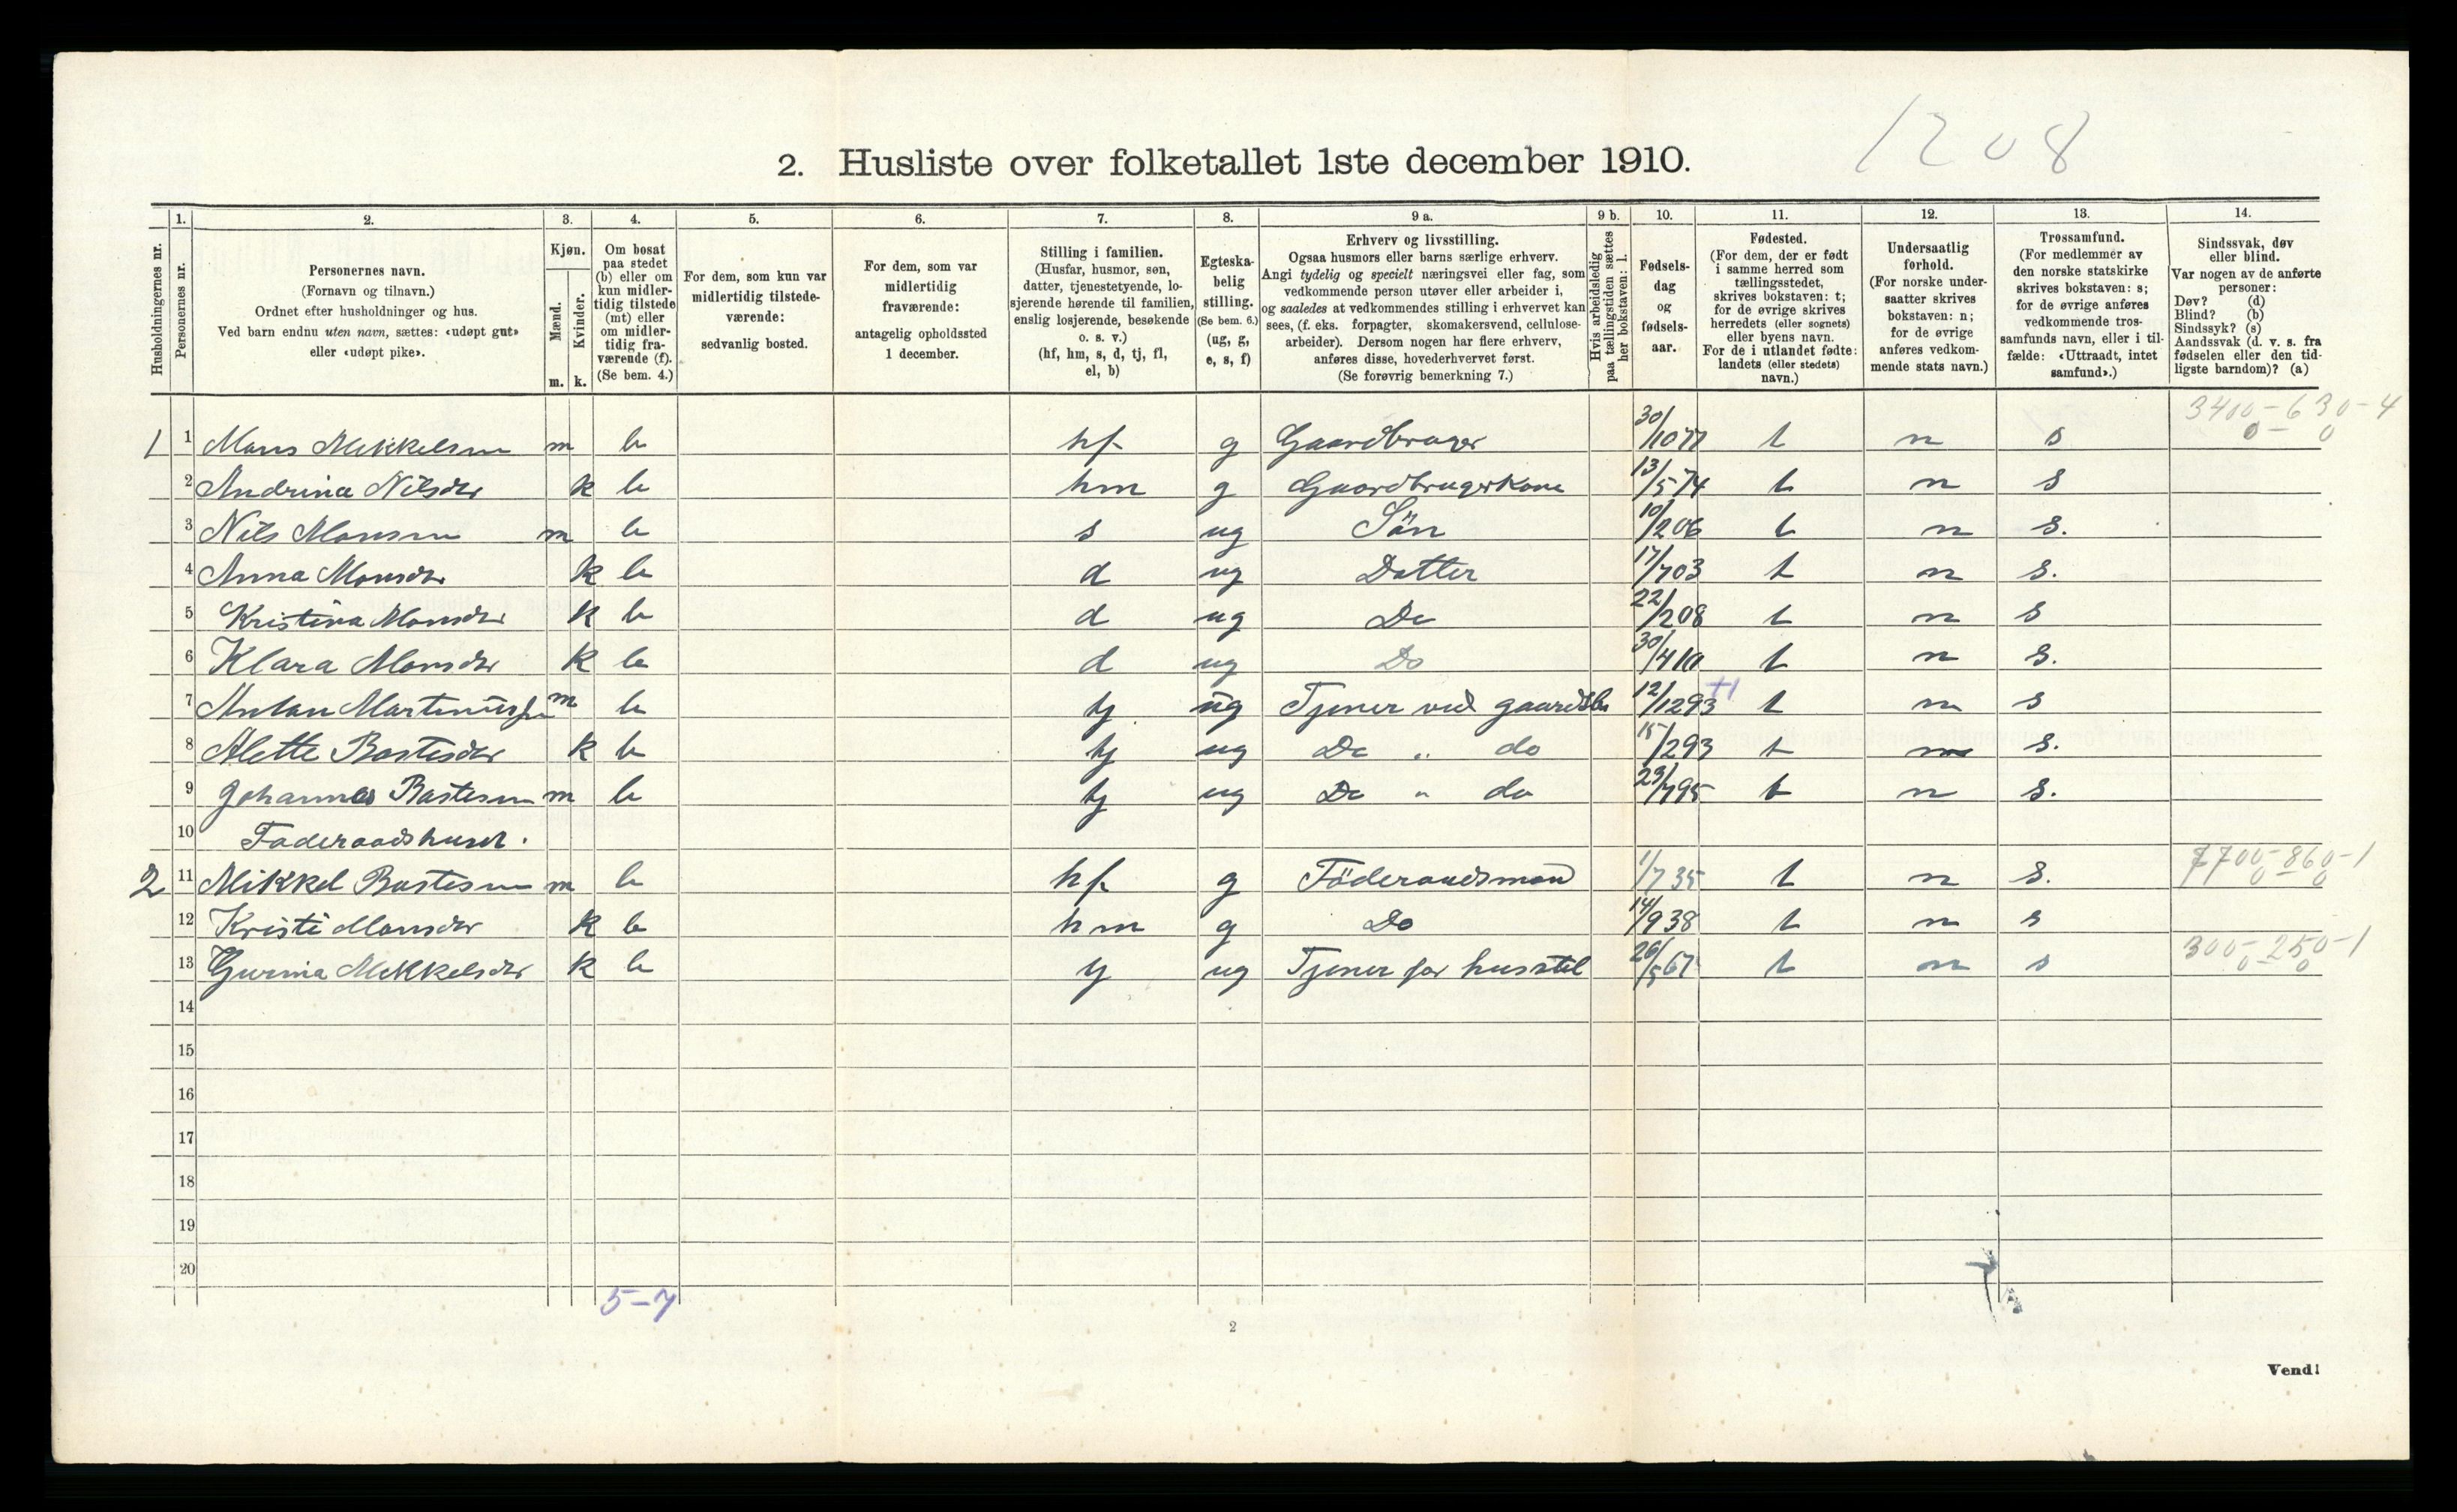 1208
2. Husliste over folketallet 1ste december 1910.
Husholdningernes nr.
1. Personernes nr.
2. Personernes navn. (Fornavn og tilnavn.) Ordnet efter husholdninger og hus. Ved barn endnu uten navn, sættes: «udøpt gut» eller «udøpt pike».
3. Kjøn. Mænd. m. Kvinder. k.
4. Om bosat paa stedet (b) eller om kun midlertidig tilstede (mt) eller om midlertidig fraværende (f). (Se bem. 4.)
5. For dem, som kun var midlertidig tilstedeværende: sedvanlig bosted.
6. For dem, som var midlertidig fraværende: antagelig opholdssted 1 december.
7. Stilling i familien. (Husfar, husmor, søn, datter, tjenestetyende, losjerende hørende til familien, enslig losjerende, besøkende o. s. v.) (hf, hm, s, d, tj, fl, el, b)
8. Egteskabelig stilling. (Se bem. 6.) (ug, g, e, s, f)
9 a. Erhverv og livsstilling. Ogsaa husmors eller barns særlige erhverv. Angi tydelig og specielt næringsvei eller fag, som vedkommende person utøver eller arbeider i, og saaledes at vedkommendes stilling i erhvervet kan sees, (f. eks. forpagter, skomakersvend, cellulosearbeider). Dersom nogen har flere erhverv, anføres disse, hovederhvervet først. (Se forøvrig bemerkning 7.)
9 b. Hvis arbeidsledig paa tællingstiden sættes her bokstaven: l.
10. Fødselsdag og fødselsaar.
11. Fødested. (For dem, der er født i samme herred som tællingsstedet, skrives bokstaven: t; for de øvrige skrives herredets (eller sognets) eller byens navn. For de i utlandet fødte: landets (eller stedets) navn.)
12. Undersaatlig forhold. (For norske undersaatter skrives bokstaven: n; for de øvrige anføres vedkommende stats navn.)
13. Trossamfund. (For medlemmer av den norske statskirke skrives bokstaven: s; for de øvrige anføres vedkommende trossamfunds navn, eller i tilfælde: «Uttraadt, intet samfund».)
14. Sindssvak, døv eller blind. Var nogen av de anførte personer: Døv? (d) Blind? (b) Sindssyk? (s) Aandssvak (d. v. s. fra fødselen eller den tidligste barndom)? (a)
3400-630-4
0- 0
1 1 Mons Mikkelsen m b hf g Gaardbruger 30/10 77 t n s
2 Andrina Nilsdtr k b hm g Gaardbrugerkone 13/5 74 t n s
3 Nils Monsen m b s ug Sön 10/2 06 t n s.
4 Anna Monsdtr k b d ug Datter 17/7 03 t n s.
5 Kristina Monsdtr k b d ug Do 22/2 08 t n s
6 Klara Monsdtr k b d ug Do 30/4 10 t n s.
7 Anton Martinussen m b tj ug Tjener ved gaardsbr 12/12 93 t n s
8 Alette Bastesdtr k b tj ug Do " do 15/2 93 t n s.
9 Johannes Bastesen m b tj ug Do " do 29/7 95 t n s.
10 Föderaadshuset.
7700-860-1
0 - 0
2 11 Mikkel Bastesen m b hf g Föderaadsmand 1/7 35 t n s.
12 Kristi Monsdtr k b hm g Do 14/9 38 t n s
300-250-1
0 - 0
13 Gurina Mikkelsdtr k b tj ug Tjener for husstel 26/5 67 t n s
14
15
16
17
18
19
20
5-7
2
Vend!